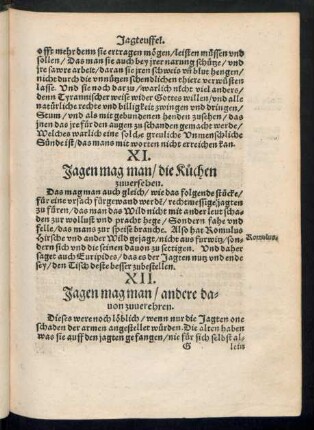 Jagteuffel.
offt mehr denn sie ertragen mögen/leisten müssen vnd
sollen/ Das man sie auch bey jrer narung schütze/ vnd
jre sawre arbeit/daran sie jren schweis vñ blut hengen/
nicht durch die vnnützen schendlichen thiere verwüsten
lasse. Vnd sie noch darzu/warlich nicht viel anders/
denn Tyrannischer weise wider Gottes willen/vnd alle
natürliche rechte vnd billigkeit zwingen vnd dringen/
Stum/vnd als mit gebundenen henden zusehen/das
jnen das jre für den augen zu schanden gemacht werde/
Welches warlich eine solche greuliche Vnmenschliche
Sünde ist/das mans mit worten nicht erreichen kan.
XI.
Jagen mag man/die Küchen
zuuersehen.
Das mag man auch gleich/wie das folgende stücke/
für eine vrsach fürgewand werdē/rechtmessige jagten
zu füren/das man das Wild nicht mit ander leut scha-
den zur wollust vnd pracht hege/ Sondern fahe vnd
felle/das mans zur speise brauche. Also hat Romulus
Hirsche vnd ander Wild gejagt/nicht aus furwitz/son-
dern sich vnd die seinen dauon zu settigen. Vnd daher
saget auch Euripides/das es der Jagten nutz vnd ende
sey/den Tisch deste besser zubestellen.
Romulus.
XII.
Jagen mag man/andere da-
uon zuuerehren.
Dieses were noch löblich/wenn nur die Jagten one
schaden der armen angestellet würden. Die alten haben
was sie auff den jagten gefangen/nie für sich selbst al-
G lein